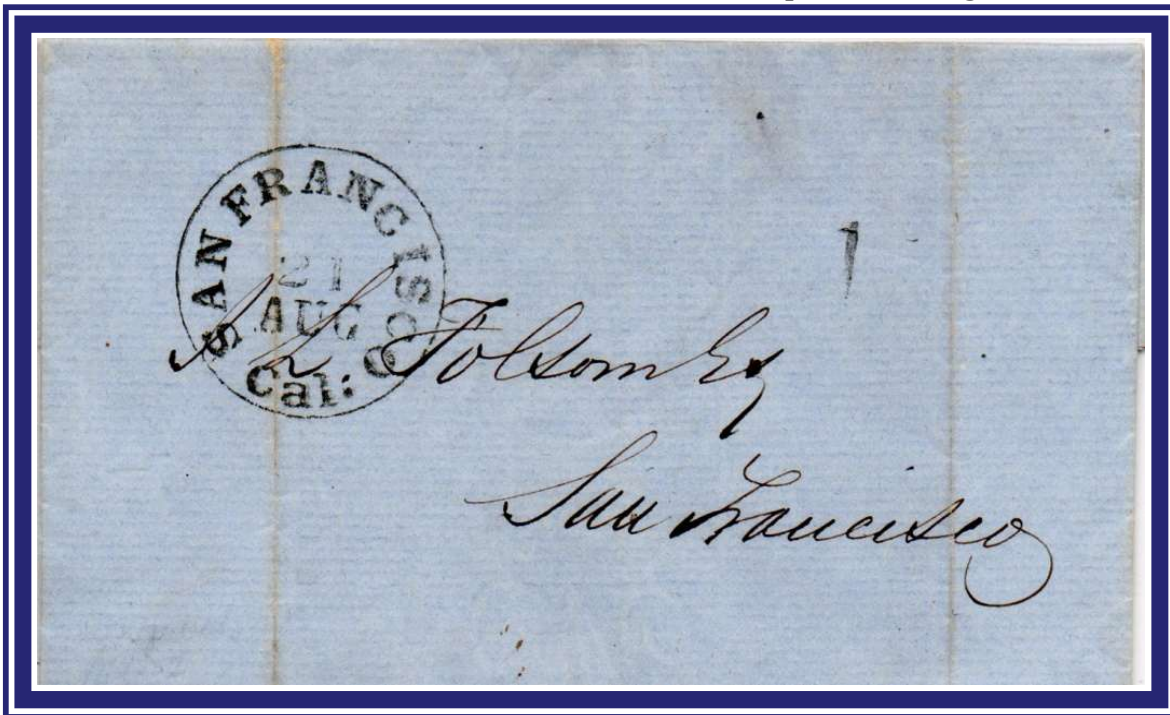 SAN FRANCISCO
21
AUG
Cal:
1
J L Folsom Esq
San Francisco